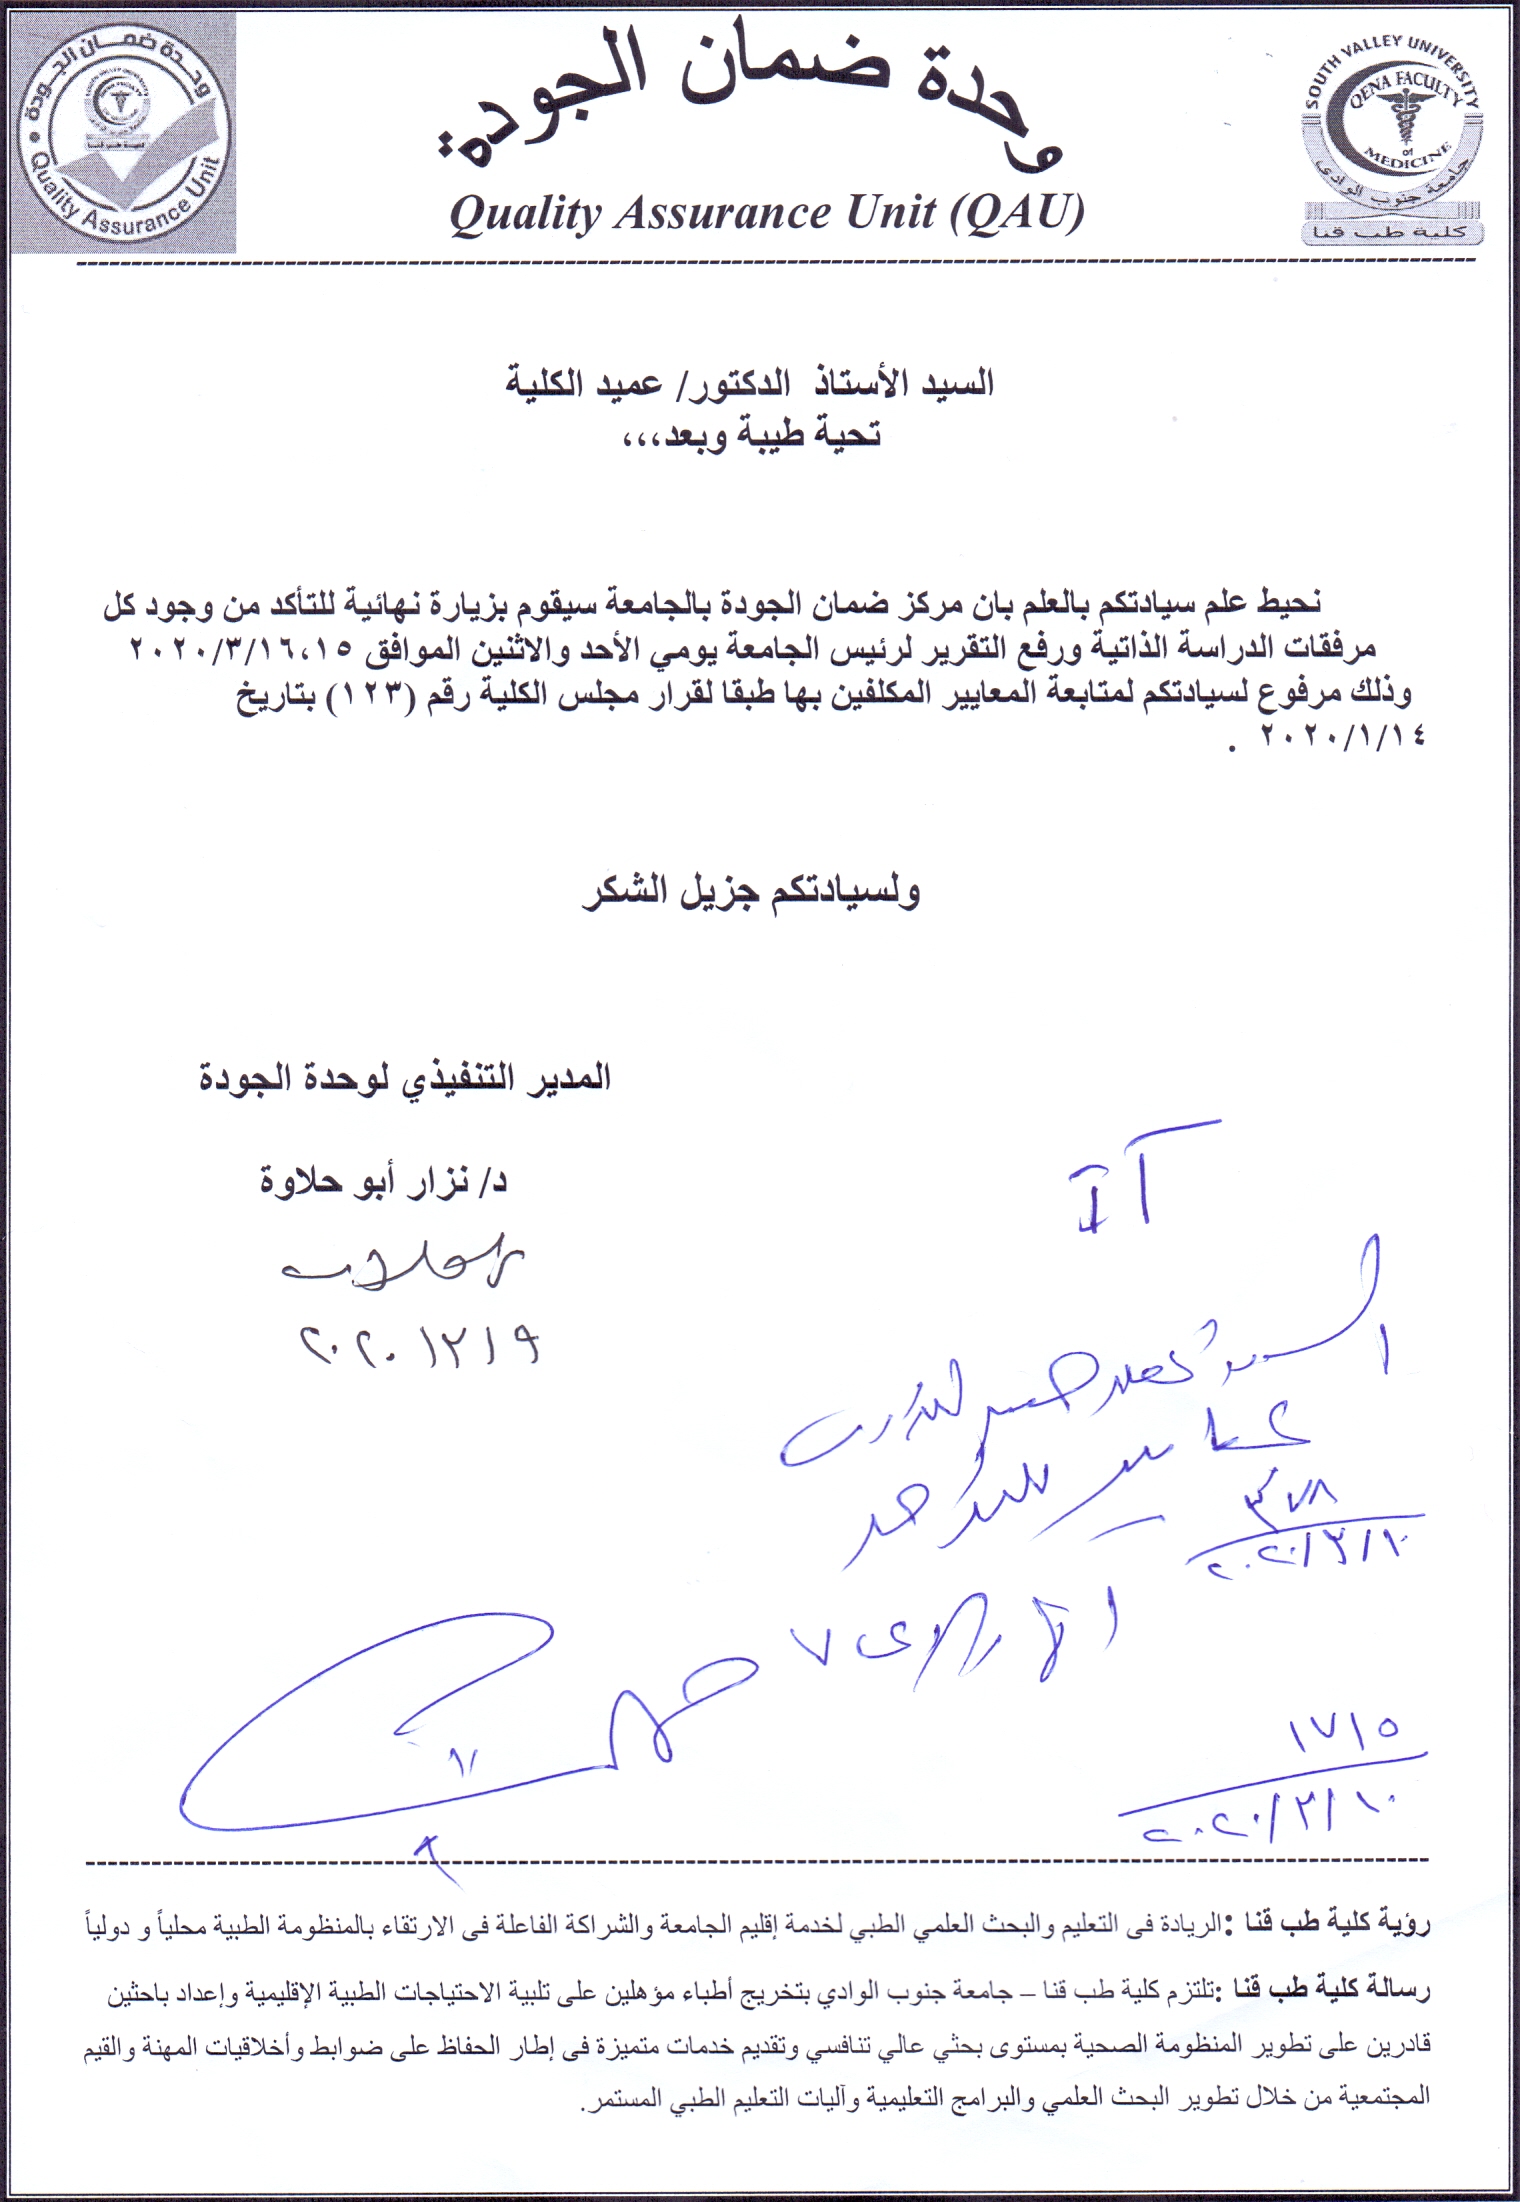 وحدة ضمان الجودة
Quality Assurance Unit
وحدة ضمان الجودة
Quality Assurance Unit (QAU)
SOUTH VALLEY UNIVERSITY
QENA FACULTY
of
MEDICINE
جامعة جنوب الوادى
كلية طب قنا
السيد الأستاذ الدكتور/ عميد الكلية
تحية طيبة وبعد،،،
نحيط علم سيادتكم بالعلم بان مركز ضمان الجودة بالجامعة سيقوم بزيارة نهائية للتأكد من وجود كل
مرفقات الدراسة الذاتية ورفع التقرير لرئيس الجامعة يومي الأحد والاثنين الموافق ١٦،١٥/٣/٢٠٢٠
وذلك مرفوع لسيادتكم لمتابعة المعايير المكلفين بها طبقا لقرار مجلس الكلية رقم (١٢٣) بتاريخ
٢٠٢٠/١/١٤ .
ولسيادتكم جزيل الشكر
المدير التنفيذي لوحدة الجودة
د/ نزار أبو حلاوة
٢٠٢٠/٣/٩
٣٧٨
٢٠٢٠/٣/١٠
١٧١٥
٢٠٢٠/٣/١٠
رؤية كلية طب قنا :الريادة فى التعليم والبحث العلمي الطبي لخدمة إقليم الجامعة والشراكة الفاعلة فى الارتقاء بالمنظومة الطبية محلياً و دولياً
رسالة كلية طب قنا :تلتزم كلية طب قنا – جامعة جنوب الوادي بتخريج أطباء مؤهلين على تلبية الاحتياجات الطبية الإقليمية وإعداد باحثين
قادرين على تطوير المنظومة الصحية بمستوى بحثي عالي تنافسي وتقديم خدمات متميزة فى إطار الحفاظ على ضوابط وأخلاقيات المهنة والقيم
المجتمعية من خلال تطوير البحث العلمي والبرامج التعليمية وآليات التعليم الطبي المستمر.